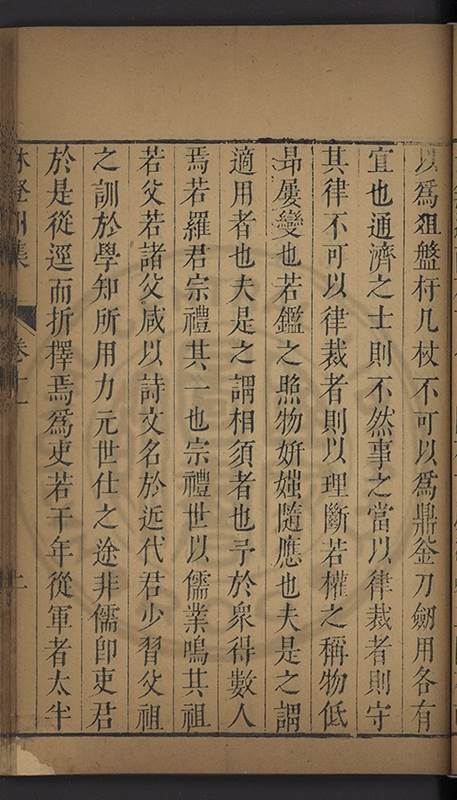 以爲俎盤杅几杖不可以爲鼎釜刀劒用各有
宜也通濟之士則不然事之當以律裁者則守
其律不可以律裁者則以理斷若權之稱物低
昻屢變也若鑑之照物妍媸隨應也夫是之謂
適用者也夫是之謂相須者也予於衆得數人
焉若羅君宗禮其一也宗禮世以儒業鳴其祖
若父若諸父咸以詩文名於近代君少習父祖
之訓於學知所用力元世仕之途非儒卽吏君
於是從逕而折擇焉爲吏若干年從軍者太半
林登州集
卷十一